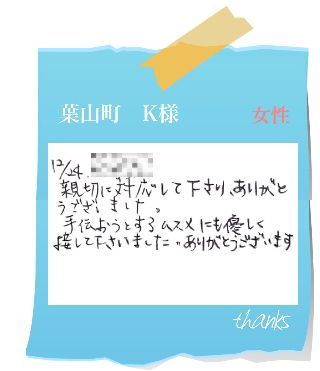 葉山町　K様
女性
12/24.
親切に対応して下さり、ありがと
うございました。
手伝おうとするムスメにも優しく
接して下さいました。ありがとうございます
thanks